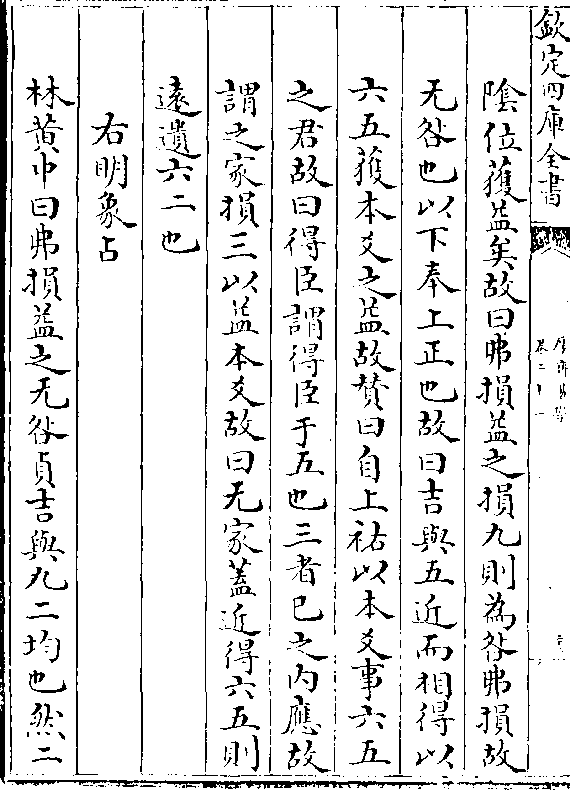 欽定四庫全書
陰位獲益矣故曰弗損益之損九則為咎弗損故
无咎也以下奉上正也故曰吉與五近而相得以
六五獲本爻之益故贊曰自上祐以本爻事六五
之君故曰得臣謂得臣于五也三者已之内應故
謂之家損三以益本爻故曰无家蓋近得六五則
遠遺六二也
右明象占
林黄中曰弗損益之无咎貞吉與九二均也然二